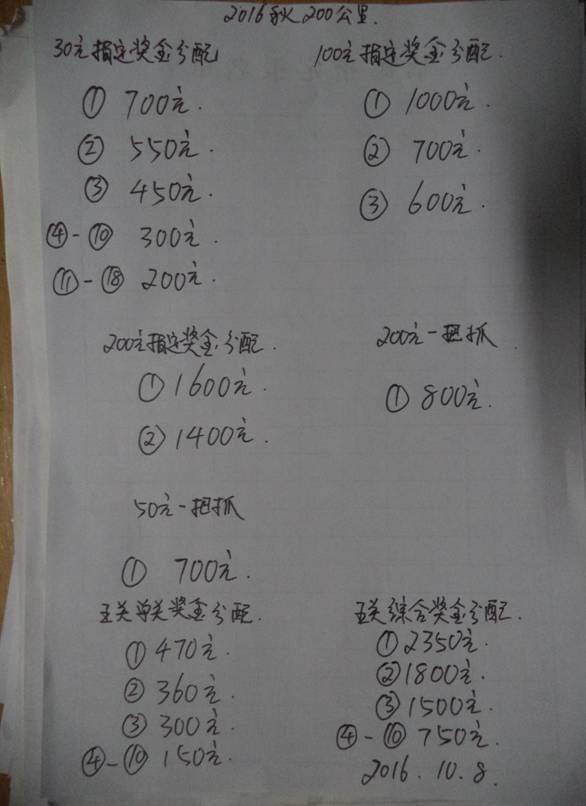 2016秋200公里.
30元指定奖金分配
① 700元.
② 550元.
③ 450元.
④-⑩ 300元.
⑪-⑱ 200元.
100元指定奖金分配.
① 1000元.
② 700元.
③ 600元.
200元指定奖金分配.
① 1600元.
② 1400元.
200元一把抓.
① 800元.
50元一把抓
① 700元.
五关单关奖金分配.
① 470元.
② 360元.
③ 300元.
④-⑩ 150元.
五关综合奖金分配.
① 2350元.
② 1800元.
③ 1500元.
④-⑩ 750元.
2016.10.8.